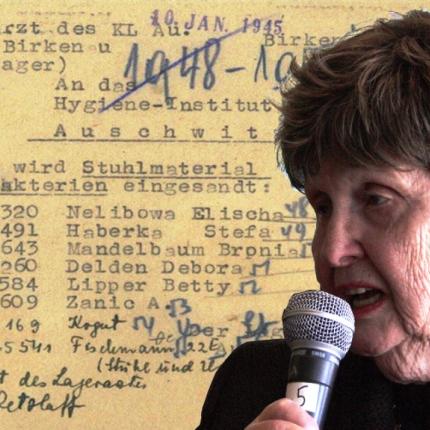 10. JAN. 1945
arzt des KL Au.
Birken u
Birken
ager)
1948-19
An das
Hygiene-Institut
Auschwit
wird Stuhlmaterial
akterien eingesandt:
320 Nelibowa Elischa 48
491 Haberka Stefa 49
643 Mandelbaum Bronia
260 Delden Debora 51
584 Lipper Betty 52
609 Zanic A 53
169 Kogut 54
5541 Fischmann 22E
(Stühle und
t des Lagerarztes
5